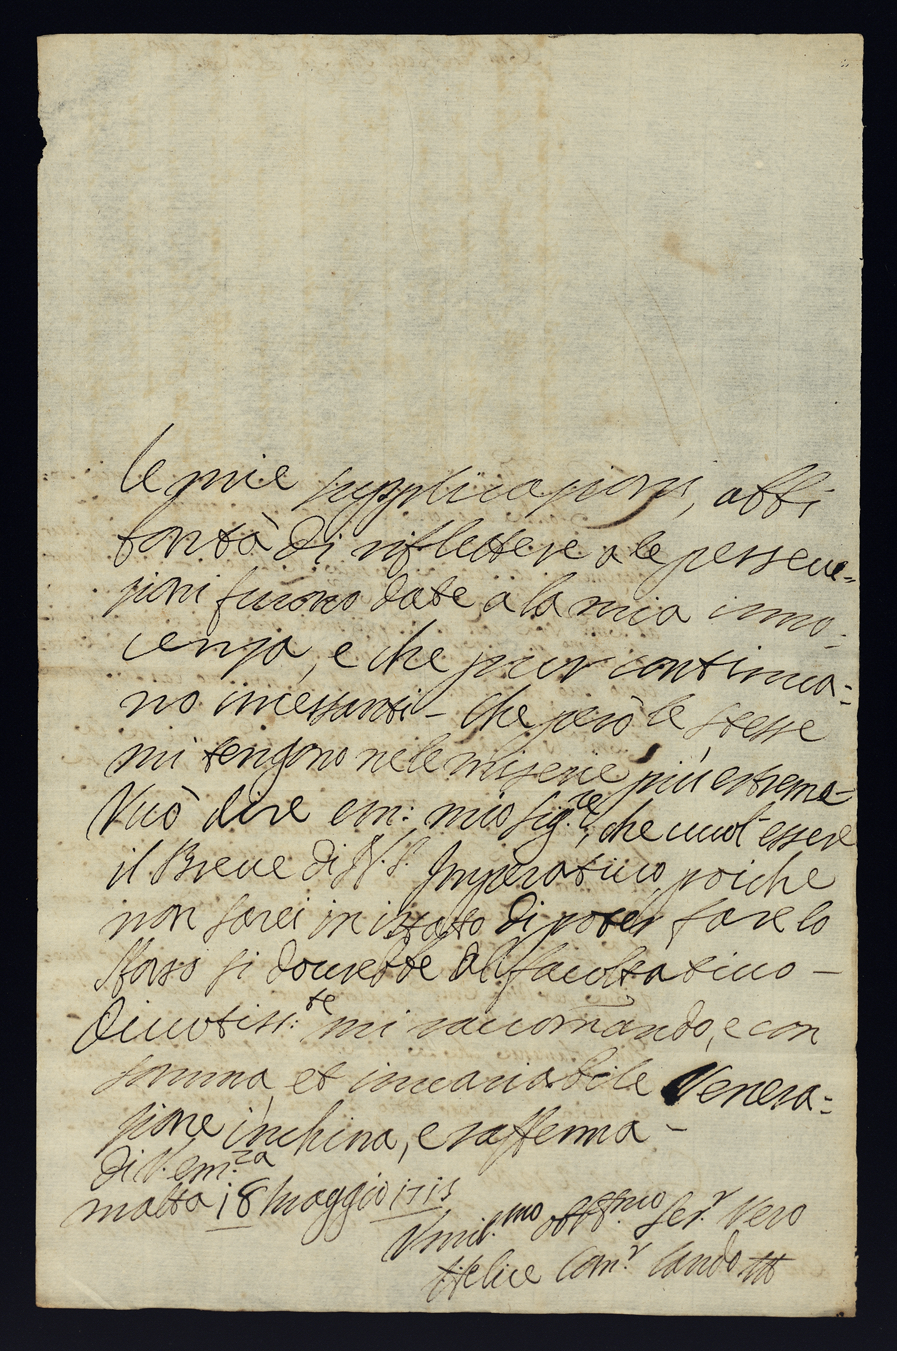 le mie supplicazioni, abbi
bontà di riflettere a le persecu=
zioni furono date a la mia inno=
cenza, e che pur continua=
no incessanti – che però le stesse
mi tengono ne le miserie più estreme –
Vuò dire em: mio Sig.re, che vuol essere
il Breve di N. S. Imperativo poiche
non sarei in istato di poter fare lo
sforso si dovrebbe al facoltativo –
Divotiss:te mi raccomando, e con
somma, et invariabile Venera=
zione inchina, e rafferma –
di V. em:za
malta 18 Maggio 1715
Vmil.mo obb.mo Ser.r Vero
felice